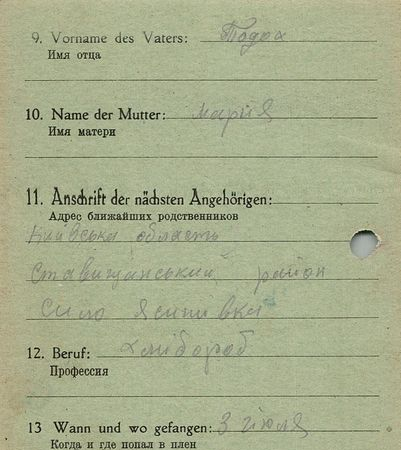 9. Vorname des Vaters: Тодоа
Имя отца
10. Name der Mutter: Мария
Имя матери
11. Anschrift der nächsten Angehörigen:
Адрес ближайших родственников
Київська область
Ставищанський район
Село
12. Beruf: Хлібороб
Профессия
13 Wann und wo gefangen: 3 июля
Когда и где попал в плен